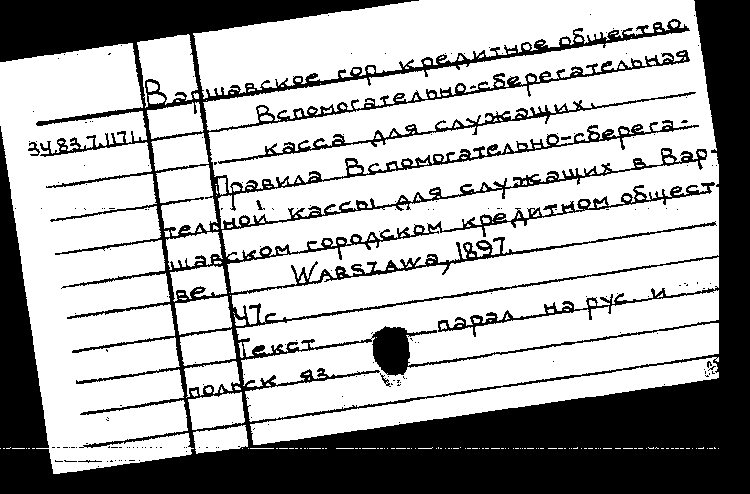 Варшавское гор. кредитное общество.
Вспомогательно-сберегательная
34.83.7.1171.
касса для служащих.
Правила Вспомогательно-сберега-
тельной кассы для служащих в Вар-
шавском городском кредитном общест-
ве. WARSZAWA, 1897.
47с.
Текст парал. на рус. и
польск яз.